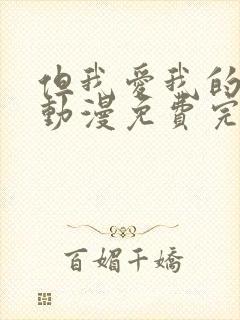 但我愛我的
動漫免費完
百媚千嬌